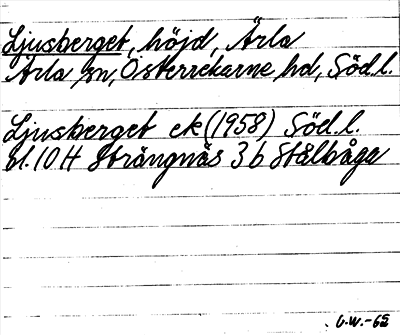 Ljusberget, höjd, Ärla
Ärla sn, Österrekarne hd, Söd.l.
Ljusberget ek (1958) Söd.l.
bl. 10 H Strängnäs 3 b Stålbåga
G.W.-65